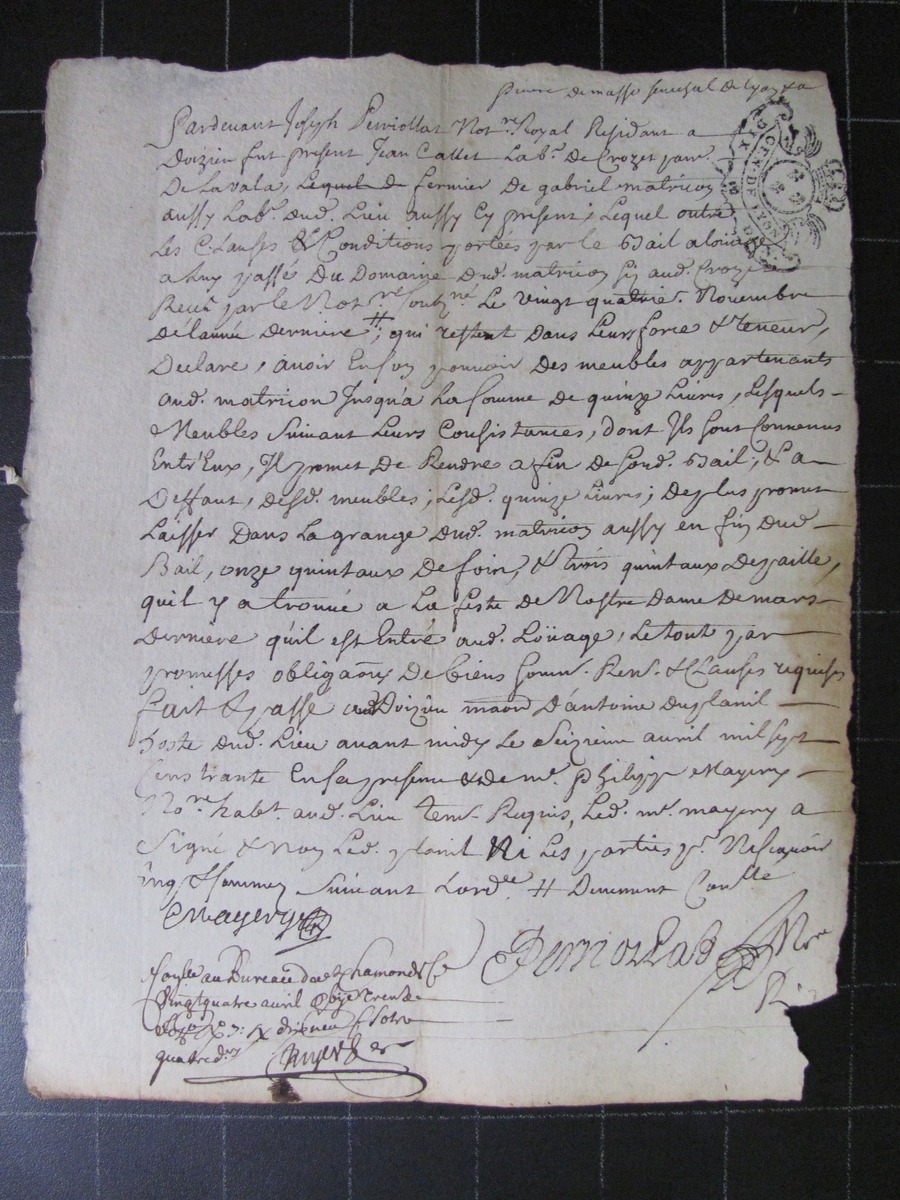 pierre de masso senechal de Lyon &a
Pardevant Joseph Perriollat Not.re Royal Residant a
Doizieu fut present Jean Callet Lab.r de Crozet parr.
De Lavala, Lequel de fermier De gabriel matricon
aussy Lab.r dud. Lieu aussy Cy present; Lequel outre
Les Clauses & Conditions portées par le Bail a loüage
a Luy passé Du Domaine dud. matricon sis aud. Croze
Receu par le Not.re soubz.né Le vingt quatrie. Novembre
De lannée Derniere #; qui restent Dans Leurs force & teneur,
Declare, avoir En son pouvoir Des meubles appartenants
aud. matricon Jusqu'a La somme De quinze Livres, Lesquels
Meubles Suivant Leurs Consistances, dont Ils sont Convenus
Entr'Eux, Il promet De Rendre a fin de sond. Bail; & a
Deffaut, desd. meubles; Lesd. quinze Livres; De plus promet
Laisser Dans La grange Dud. matricon aussy en fin dud
Bail, onze quintaux De foin, & trois quintaux De paille,
quil y a trouvée a La feste De Nostre Dame De mars
Derniere qu'il est Entré aud. Loüage, Le tout par
promesses obliga.ons De biens soum. Ren. & Clauses requises
fait & passé aud Doizieu maon D'antoine du planil
hoste dud. Lieu avant midy Le Seizieme avril mil sept
Cens trante En sa presence & de m.e Philippe Mayery
No.re habt. aud. Lieu tem. Requis, Led. m.e mayery a
Signé & non Led. planil Ni Les parties p.r Ne scavoir
Enq. & sommez Suivant Lord.ce # Duement Con.lle
Mayery
Perriollat No.re
R.
Con.lle au Bureau de St Chamond Ce
Vingt quatre avril 1730 trente
quatre d.